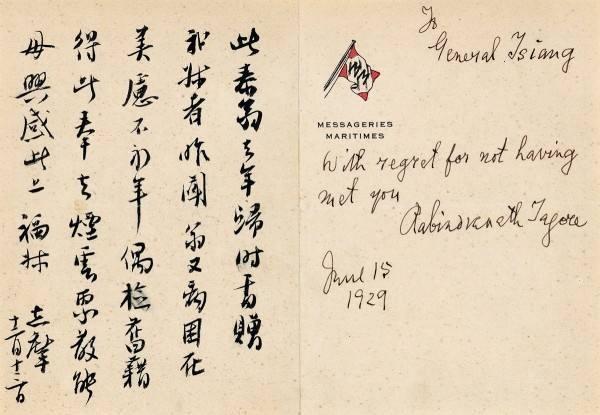 此泰翁去年歸時書贈
者昨聞翁又病困在
美慮不永年偶檢舊藉
得此奉去煙雲聚散能
毋興感此上 福林 志摩
十二日
To
General Tsiang
MM
MESSAGERIES
MARITIMES
With regret for not having
met you
Rabindranath Tagore
June 15
1929